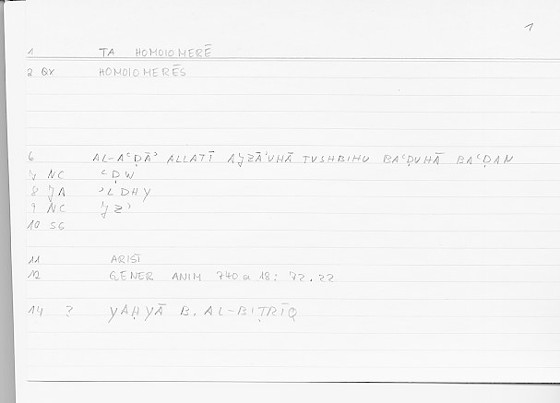 1
1 TA HOMOIOMERĒ
2 QV HOMOIOMERĒS
6 AL-AʿḌĀʾ ALLATĪ AJZĀʾUHĀ TUSHBIHU BAʿḌUHĀ BAʿḌAN
7 NC ʿḌW
8 JA ʾLDHY
9 NC JZʾ
10 SG
11 ARIST
12 GENER ANIM 740 a 18; 72.22
14 2 YAḤYĀ B. AL-BIṬRĪQ